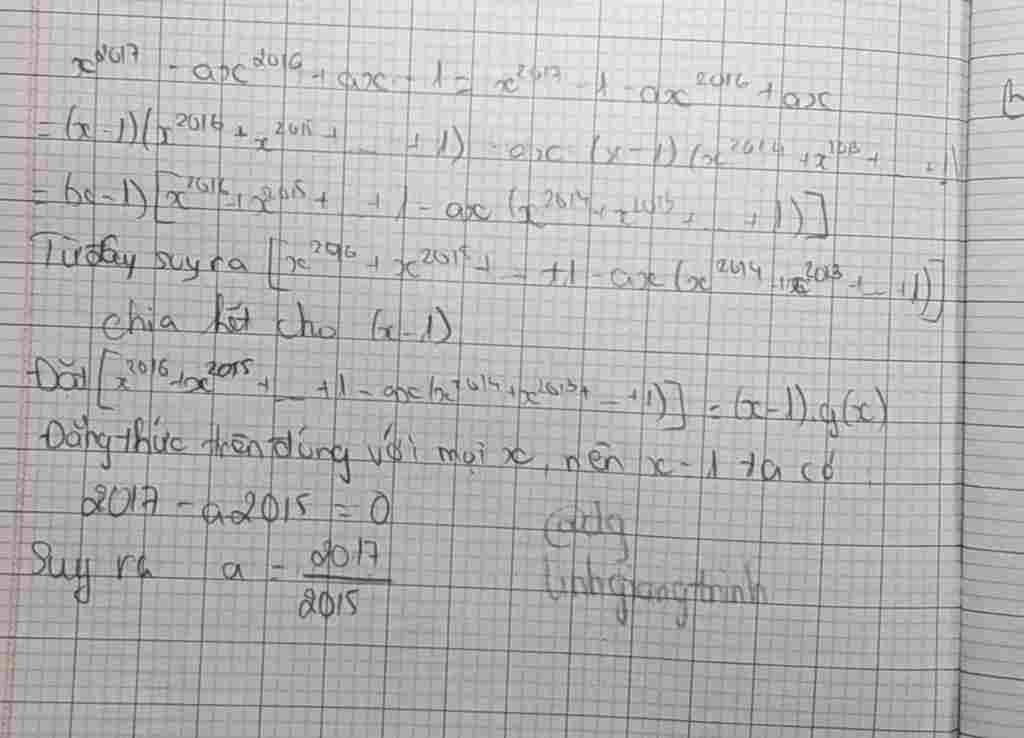 x^2017 - ax^2016 + ax - 1 = x^2017 - 1 - ax^2016 + ax
= (x-1)(x^2016 + x^2015 + ... + 1) - ax (x-1)(x^2014 + x^2013 + ... + 1)
= (x-1)[x^2016 + x^2015 + ... + 1 - ax (x^2014 + x^2013 + ... + 1)]
Từ đây suy ra [x^2016 + x^2015 + ... + 1 - ax (x^2014 + x^2013 + ... + 1)]
chia hết cho (x-1)
Đặt [x^2016 + x^2015 + ... + 1 - ax (x^2014 + x^2013 + ... + 1)] = (x-1).g(x)
Đẳng thức trên đúng với mọi x, nên x = 1 ta có
2017 - a2015 = 0
Suy ra a = 2017/2015
linhgiangtrinh